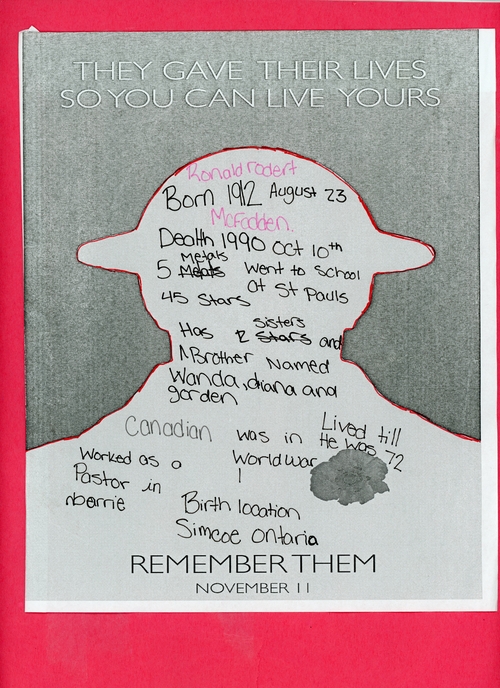 THEY GAVE THEIR LIVES
SO YOU CAN LIVE YOURS
Ronald rodert
Born 1912 August 23
McFadden.
Death 1990 Oct 10th
metals
5 Metals went to school
45 stars at St Pauls
sisters
Has 2 stars and
1 Brother Named
Wanda, diana and
gorden
Canadian was in Lived till
He was 72
Worked as a World War
Pastor in 1
Birth location
Simcoe ontaria
REMEMBER THEM
NOVEMBER 11